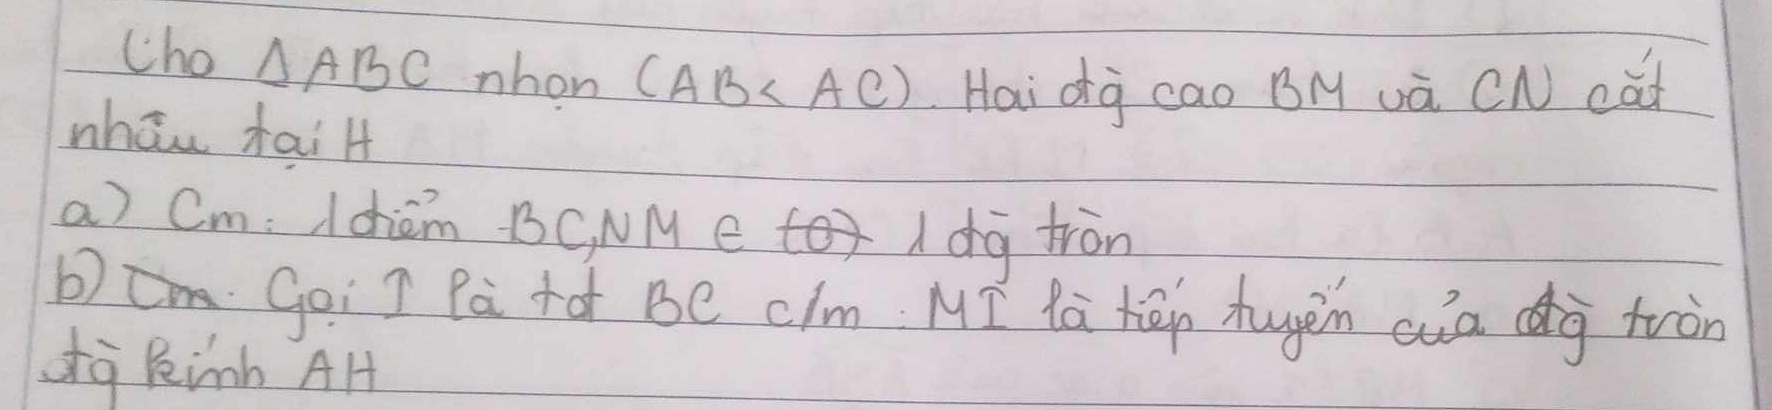 Cho ΔABC nhọn (AB< AC). Hai đg cao BM và CN cắt
nhău tại H
a) Cm: 1 điểm BC,NM ∈ 1 đg tròn
b) Gọi I là tđ BC c/m: MI là tiếp tuyến của đg tròn
đg kính AH